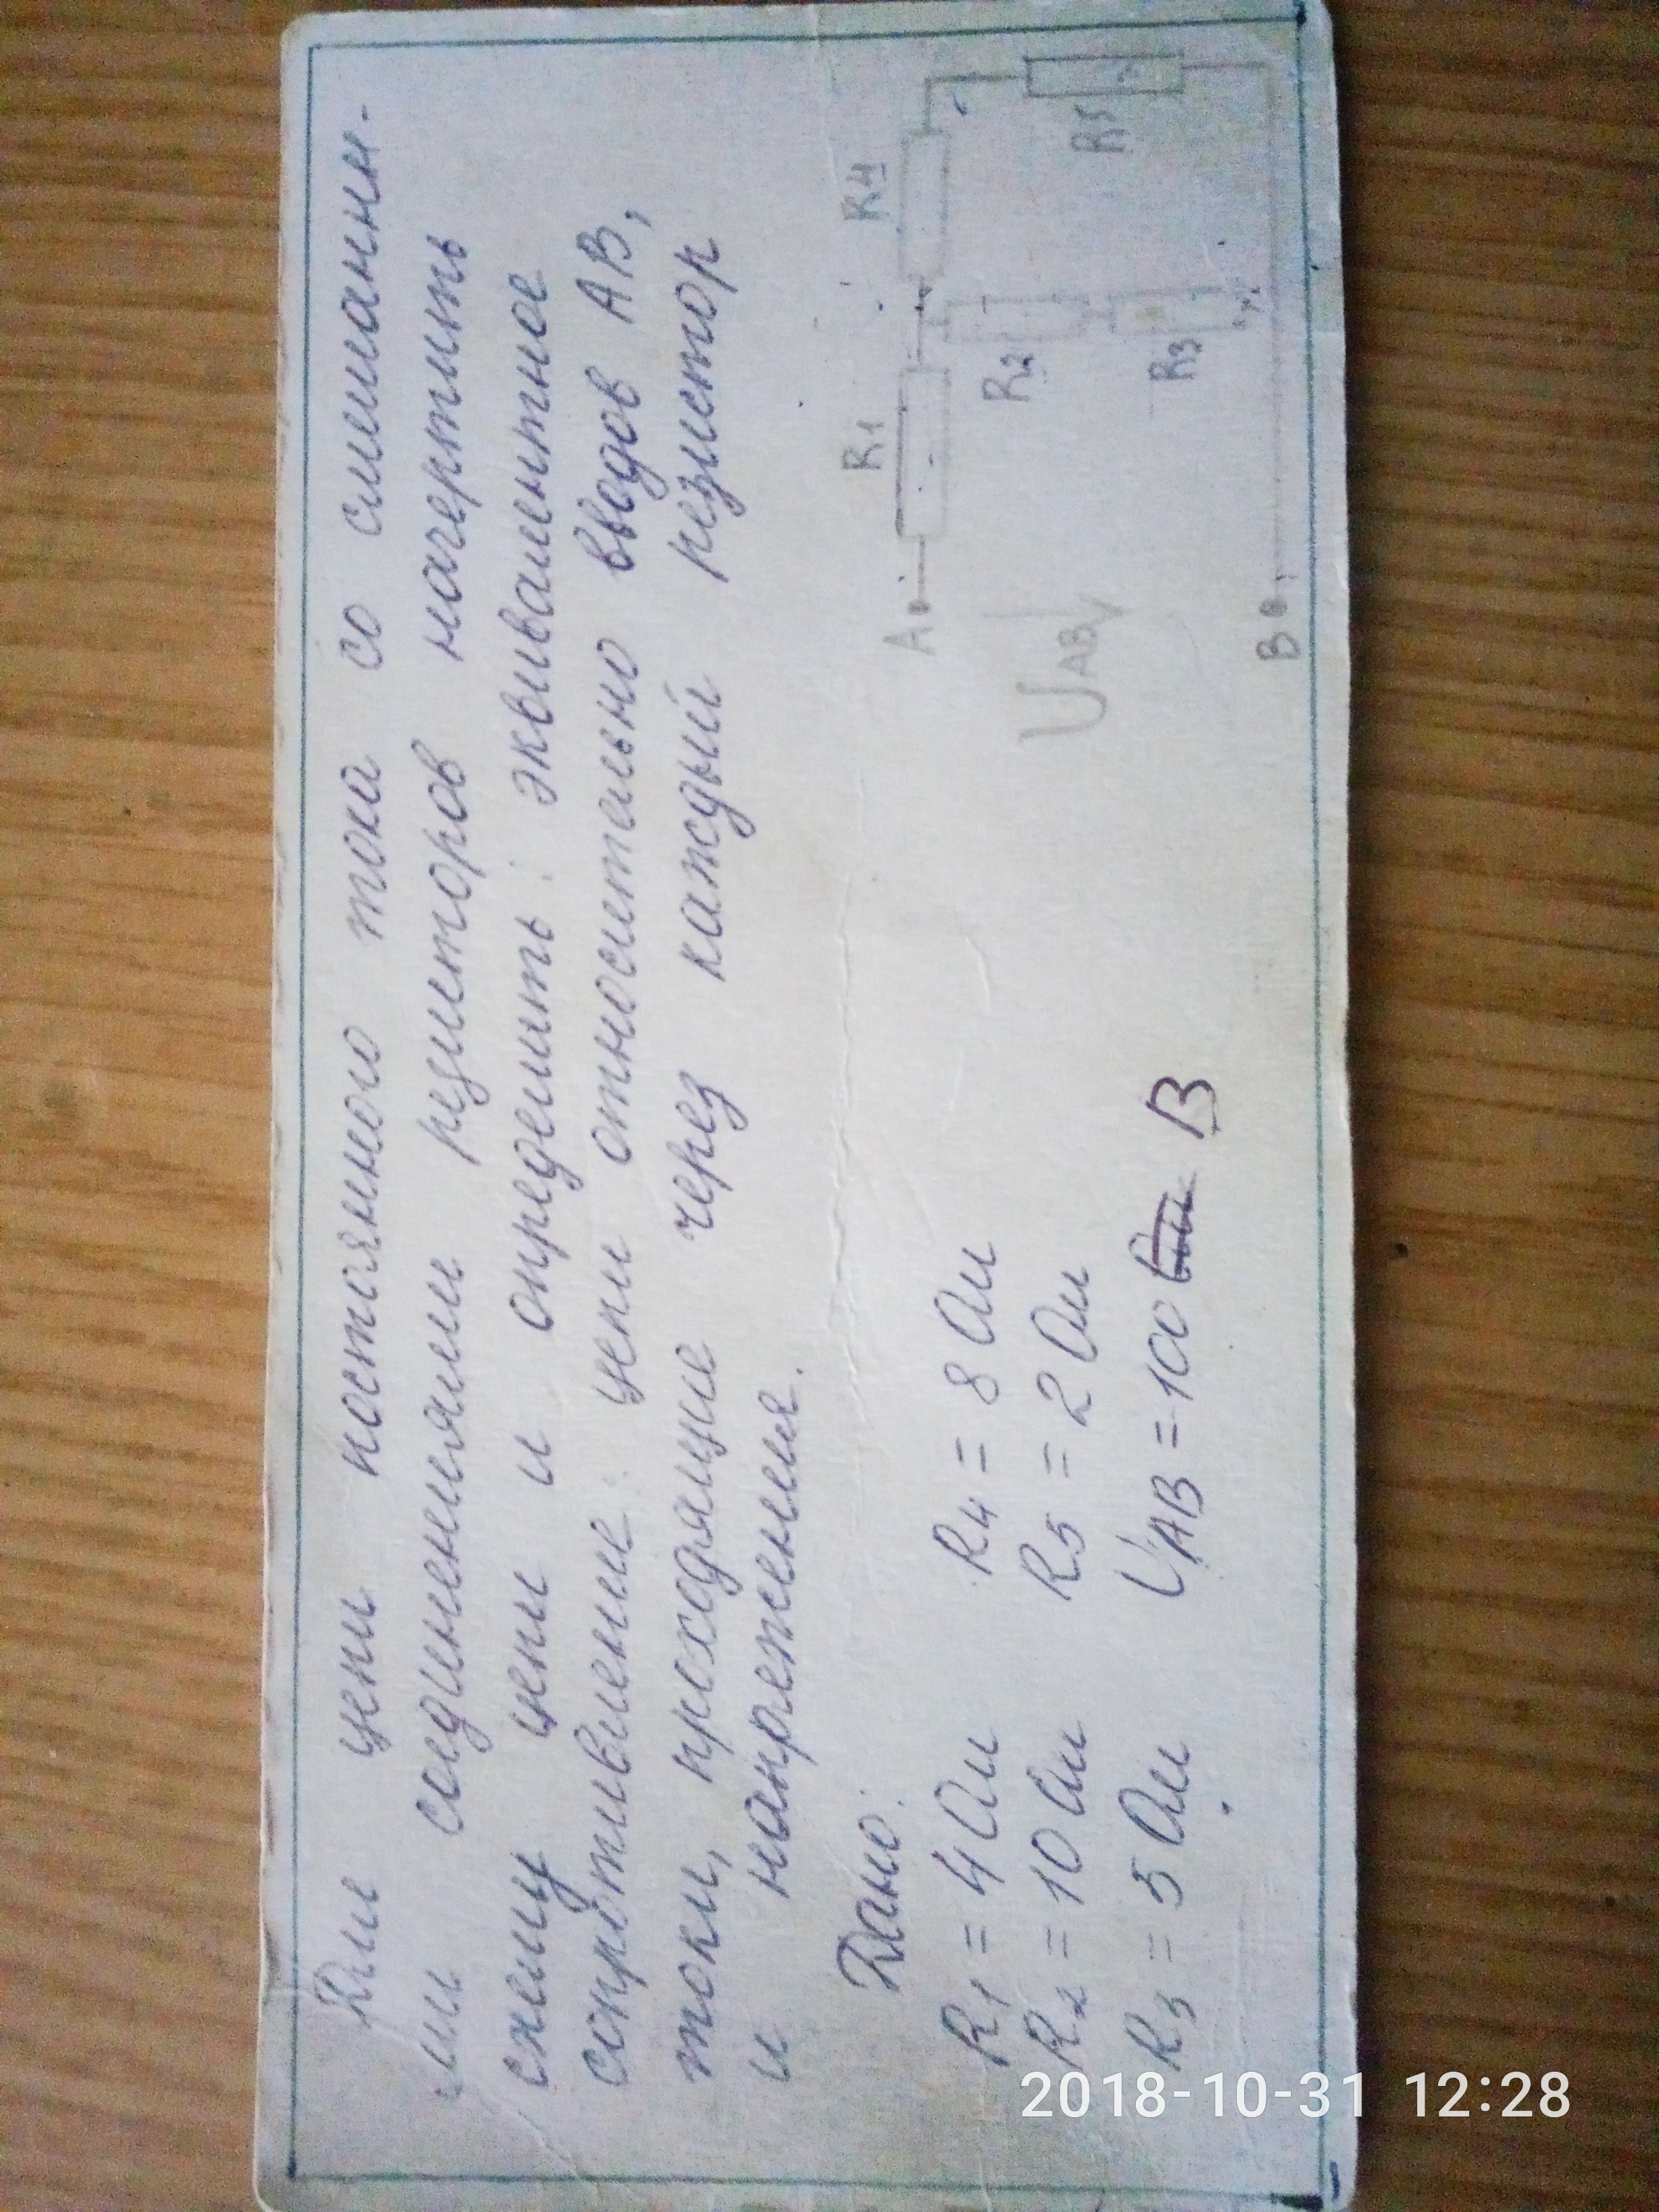 Для цепи постоянного тока со смешанны-
ми соединениями резисторов начертить
схему цепи и определить: эквивалентное
сопротивление цепи относительно вводов АВ,
токи, проходящие через каждый резистор
и напряжение.
Дано:
R1 = 4 Ом R4 = 8 Ом
R2 = 10 Ом R5 = 2 Ом
R3 = 5 Ом UAB = 100 В
A R1 R4
UAB R2 R5
R3
B
2018-10-31 12:28